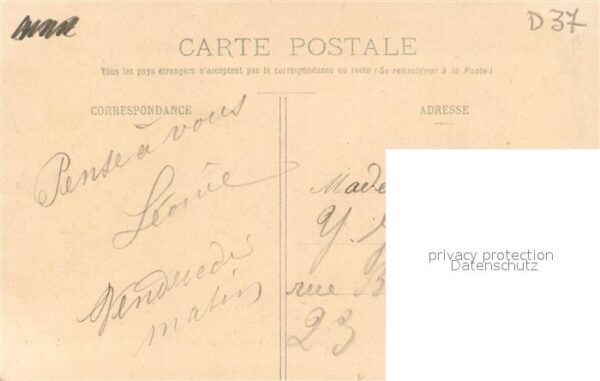 D37
CARTE POSTALE
Tous les pays étrangers n'acceptent pas la correspondance au recto (Se renseigner à la Poste)
CORRESPONDANCE
Pense à vous
Léonie
Vendredi
matin
ADRESSE
Made
Y.
rue
23
privacy protection
Datenschutz